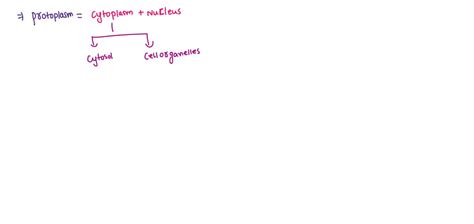 ⇒ Protoplasm = Cytoplasm + Nucleus
Cytosol Cell organelles